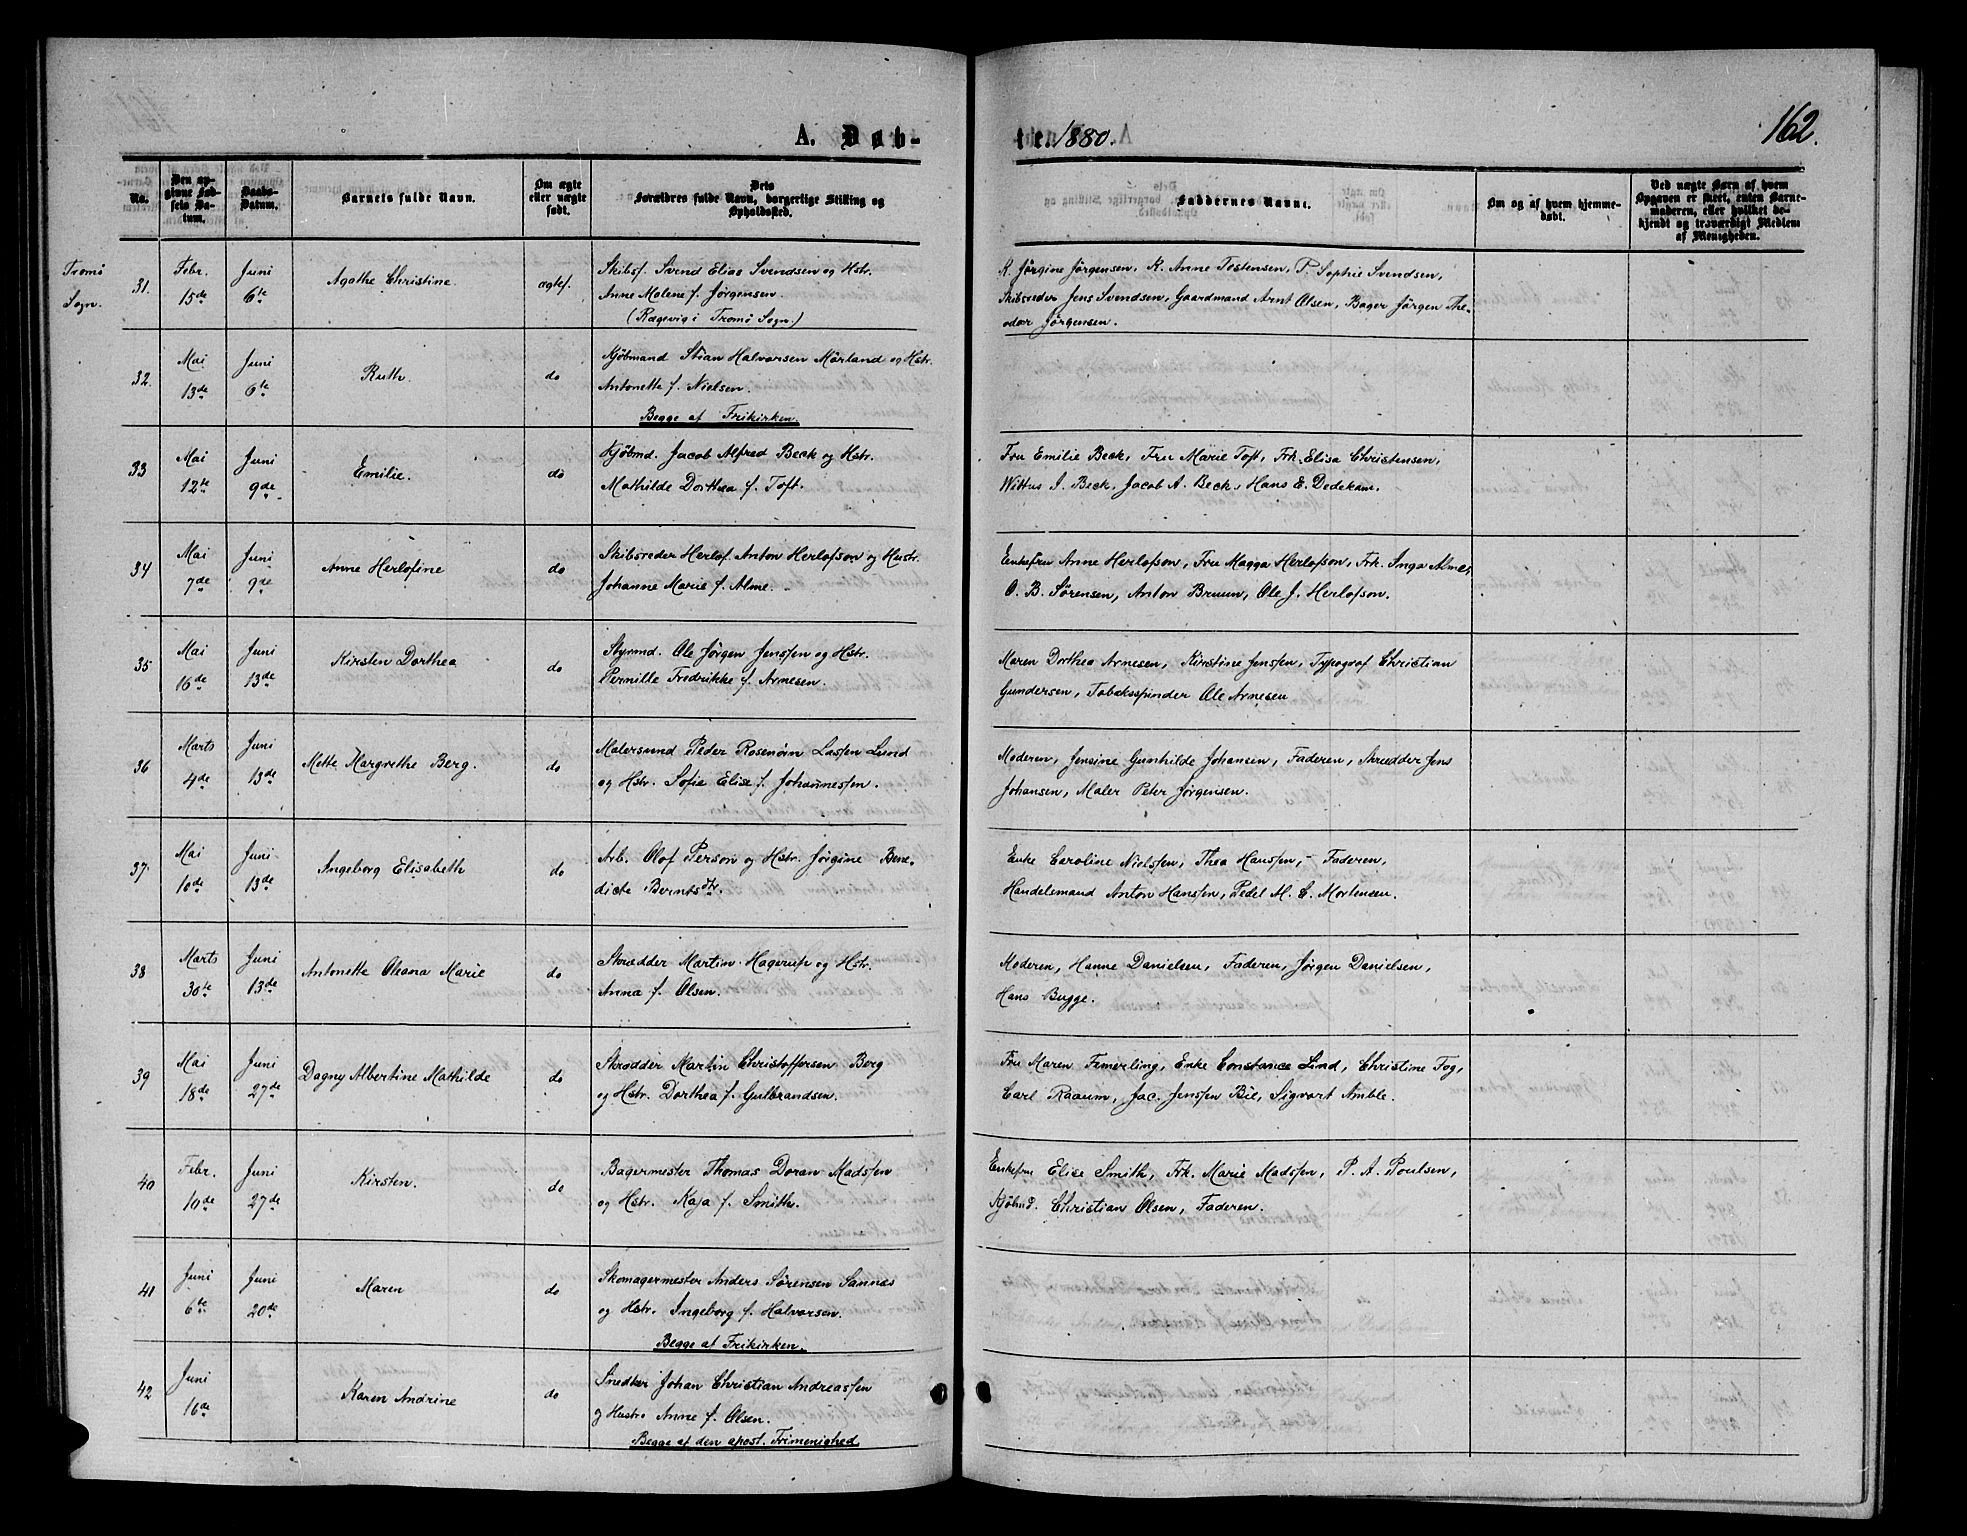 162.
A. Døb-
te. 1880.
No.
Den op-
givne Fød-
sels Da-
tum.
Daabs-
Datum.
Barnets fulde Navn.
Om ægte
eller uægte
født.
Dets
Forældres fulde Navn, borgerlige Stilling og
Opholdssted.
Faddernes Navne.
Om og af hvem hjemme-
døbt.
Ved uægte Børn af hvem
Opgaven er skeet, enten Barne-
moderen, eller hvilket be-
kjendt og troværdigt Medlem
af Menigheden.
Tromö
Sogn.
31.
Febr.
15de
Juni
6te
Agathe Christine
ægtef.
Skibsf. Svend Elias Svendsen og Hstr.
Anne Malene f. Jörgensen.
(Rægevig i Tromö Sogn.)
K. Jörgine Jörgensen, K. Anne Tostensen, P. Sophie Svendsen,
Skibsreder Jens Svendsen, Gaardmand Arnt Olsen, Bager Jörgen The-
odor Jörgensen.
32.
Mai
13de
Juni
6te
Ruth.
do
Kjöbmand Stian Halvorsen Mörland og Hstr.
Antonette f. Nielsen.
Begge af Frikirken.
33
Mai
12te
Juni
9de
Emilie.
do
Kjöbmd. Jacob Alfred Beck og Hstr.
Mathilde Dorthea f. Toft.
Fru Emilie Beck, Fru Marie Toft, Frk. Elisa Christensen,
Wittus J. Beck, Jacob A. Beck, Hans E. Dedekam.
34
Mai
7de
Juni
9de
Anne Herlofine
do
Skibsreder Herlof Anton Herlofson og Hustr.
Johanne Marie f. Alme.
Enkefru Anne Herlofson, Fru Magga Herlofson, Frk. Inga Alme,
O. B. Sörensen, Anton Bruun, Ole J. Herlofson.
35
Mai
16de
Juni
13de
Kirsten Dorthea
do
Styrmd. Ole Jörgen Jenssen og Hstr.
Pernille Fredrikke f. Arnesen.
Maren Dorthea Arnesen, Kirstine Jenssen, Typograf Christian
Gundersen, Tobaksspinder Ole Arnesen
36
Marts
4de
Juni
13de
Mette Margrethe Berg.
do
Malersvend Peder Rosenörn Lassen Lund
og Hstr. Sofie Elise f. Johannessen.
Moderen, Jensine Gunhilde Johansen, Faderen, Skrædder Jens
Johansen, Maler Peter Jörgensen.
37
Mai
10de
Juni
13de
Ingeborg Elisabeth
do
Arb. Olof Person og Hstr. Jörgine Bene-
dicte Berntsdtr.
Enke Caroline Nielssen, Thea Hanssen, Faderen,
Handelsmand Anton Hanssen, Pedel M. C. Mortensen.
38
Marts
30te
Juni
13de
Antonette Oleana Marie
do
Skrædder Martin Hagerup og Hstr.
Anna f. Olsen.
Moderen, Hanne Danielsen, Faderen, Jörgen Danielsen,
Hans Bugge.
39
Mai
18de
Juni
27de
Dagny Albertine Mathilde
do
Skrædder Martin Christoffersen Berg
og Hstr. Dorthea f. Gulbrandsen.
Fru Maren Femerling, Enke Constance Lind, Christine Fog,
Carl Raaum, Jac. Jenssen Bie, Sigvart Amble.
40
Febr.
10de
Juni
27de
Kirsten.
do
Bagermester Thomas Doran Madssen
og Hstr. Kaja f. Smith.
Enkefru Elise Smith, Frk. Marie Madssen, P. A. Poulsen,
Kjöbmd. Christian Olsen, Faderen.
41
Juni
6te
Juni
20de
Maren
do
Skomagermester Anders Sörensen Sannæs
og Hstr. Ingeborg f. Halvorsen.
Begge af Frikirken.
42
Juni
16de
Karen Andrine
do
Snedker Johan Christian Andreassen
og Hustro Anne f. Olsen.
Begge af den apost. Frimenighed